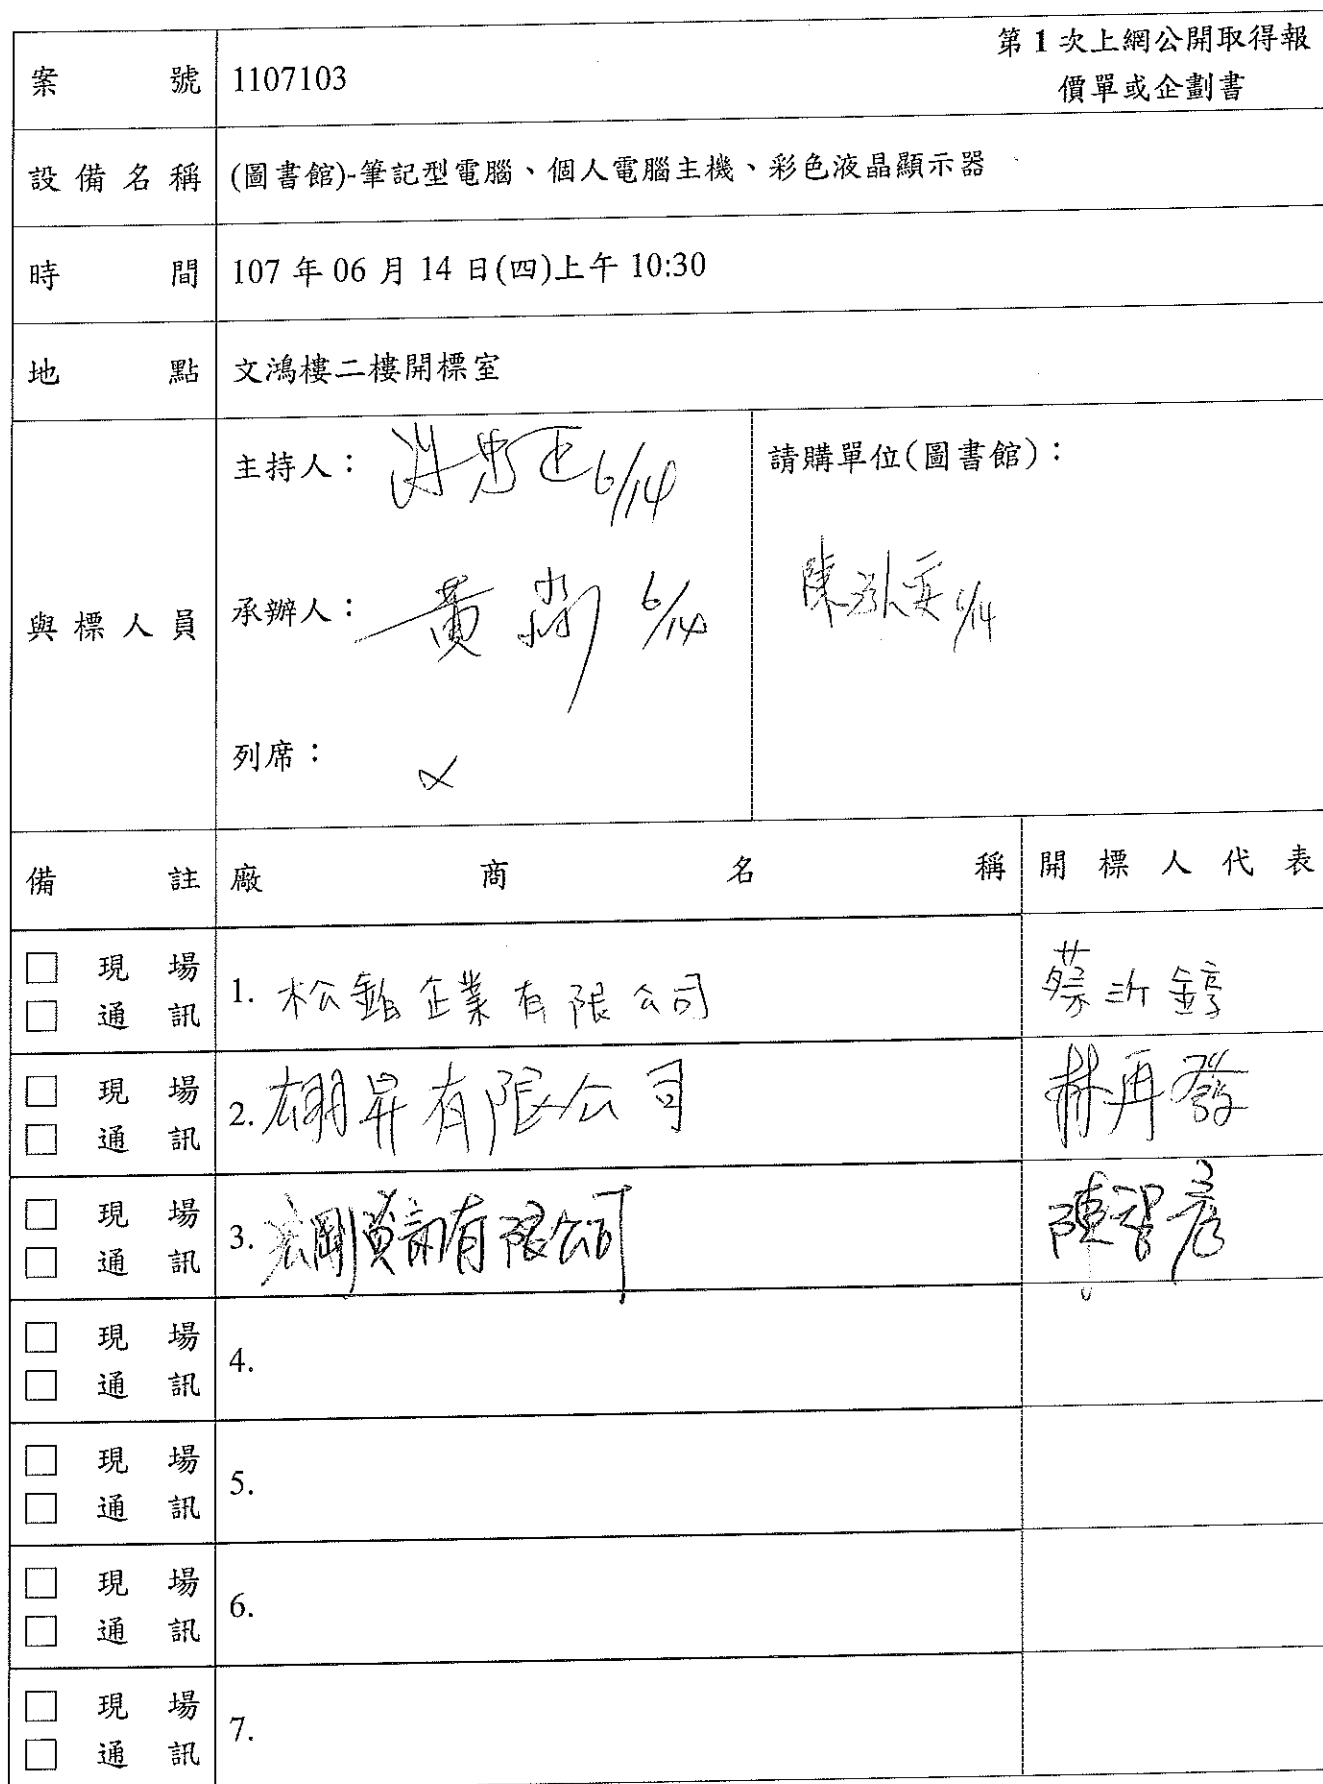 案號 1107103 第1次上網公開取得報
價單或企劃書
設備名稱 (圖書館)-筆記型電腦、個人電腦主機、彩色液晶顯示器
時間 107 年 06 月 14 日(四)上午 10:30
地點 文鴻樓二樓開標室
與標人員
主持人： 6/14
承辦人： 黃 6/14
列席：
請購單位(圖書館)：
陳 6/14
備註 廠商名稱 開標人代表
□ 現場
□ 通訊
1. 松 企業有限公司 蔡沂錞
□ 現場
□ 通訊
2. 昇有限公司 林再發
□ 現場
□ 通訊
3. 宏剛資訊有限公司 陳智彥
□ 現場
□ 通訊
4.
□ 現場
□ 通訊
5.
□ 現場
□ 通訊
6.
□ 現場
□ 通訊
7.